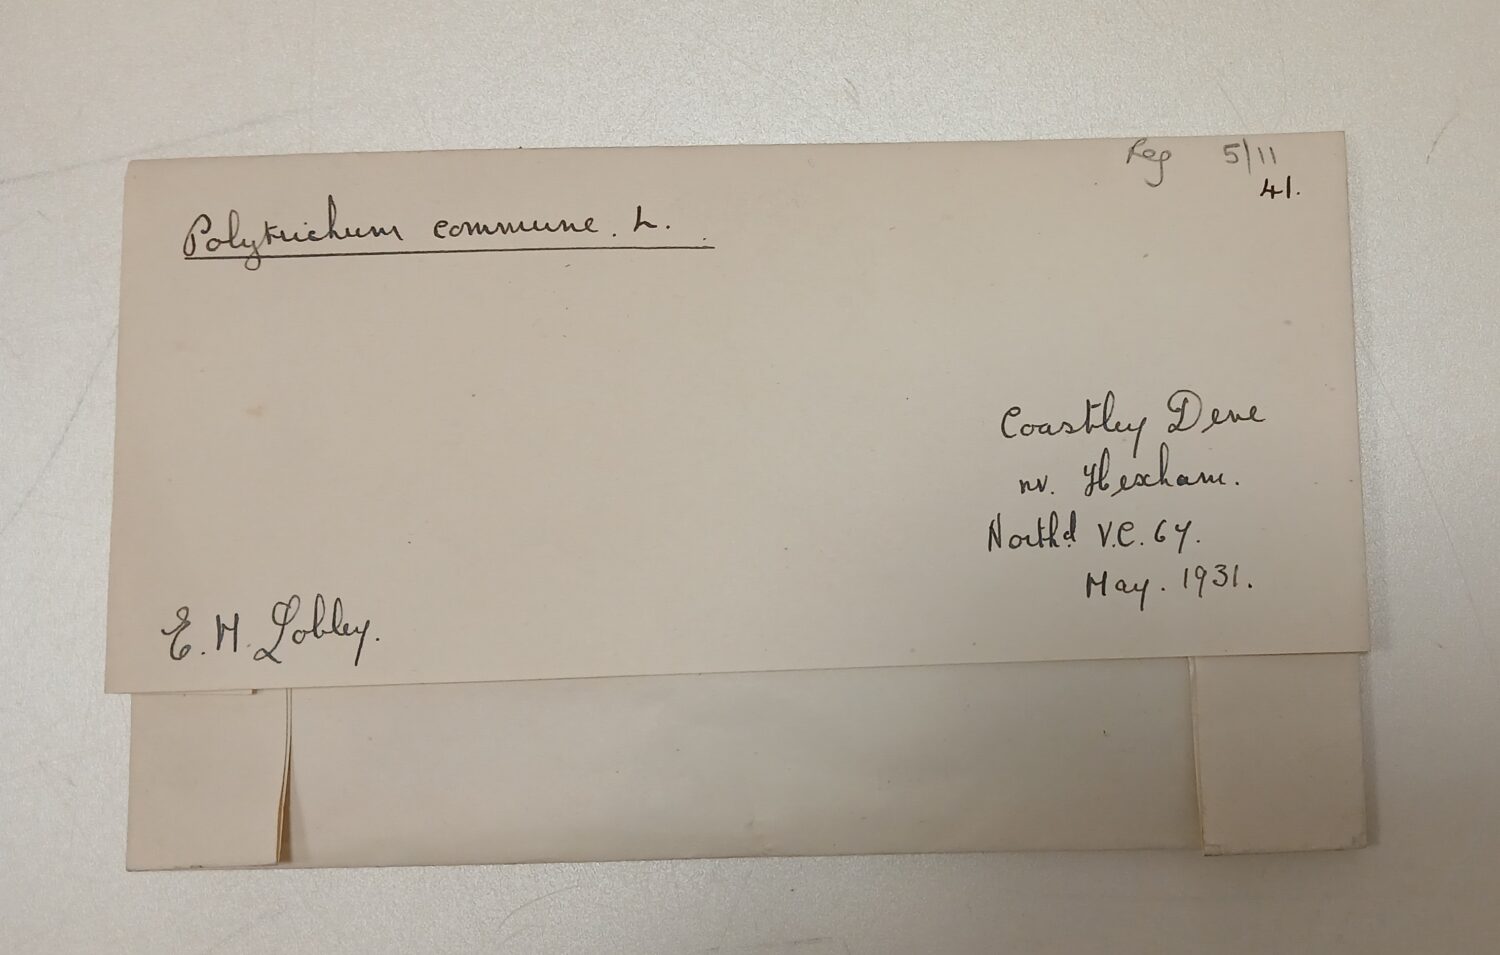 Reg 5/11
41.
Polytrichum commune. L.
Coastley Dene
nr. Hexham.
North.d V.C. 67.
May. 1931.
E. M. Lobley.